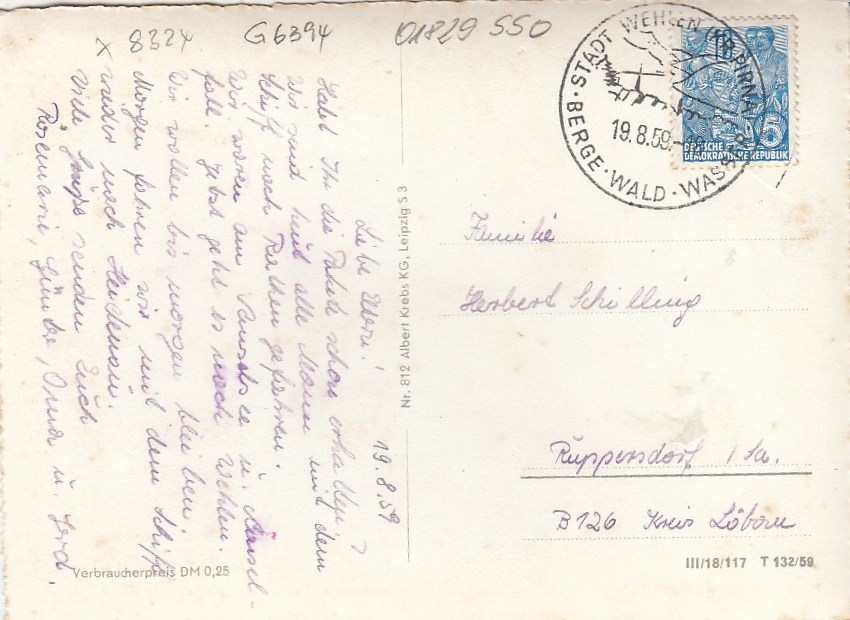 8324
G6394
01829 SSO
STADT WEHLEN (KR. PIRNA)
BERGE · WALD · WASSER
19.8.59.-18
DEUTSCHE
DEMOKRATISCHE REPUBLIK
5
19.8.59
Liebe Eltern!
Habt Ihr die Pakete schon erhalten?
Wir sind heut alle Mann mit dem
Schiff nach Rathen gefahren.
Wir waren am Amselsee u. Amsel-
fall. Jetzt geht es nach Wehlen.
Wir wollen bis morgen bleiben.
Morgen fahren wir mit dem Schiff
wieder nach
Viele Grüße senden Euch
Rosemarie, Günter, u. Gerd.
Nr. 812 Albert Krebs KG, Leipzig S 3
Familie
Herbert Schilling
Ruppersdorf i Sa.
B126 Kreis Löbau
Verbraucherpreis DM 0,25
III/18/117 T 132/59